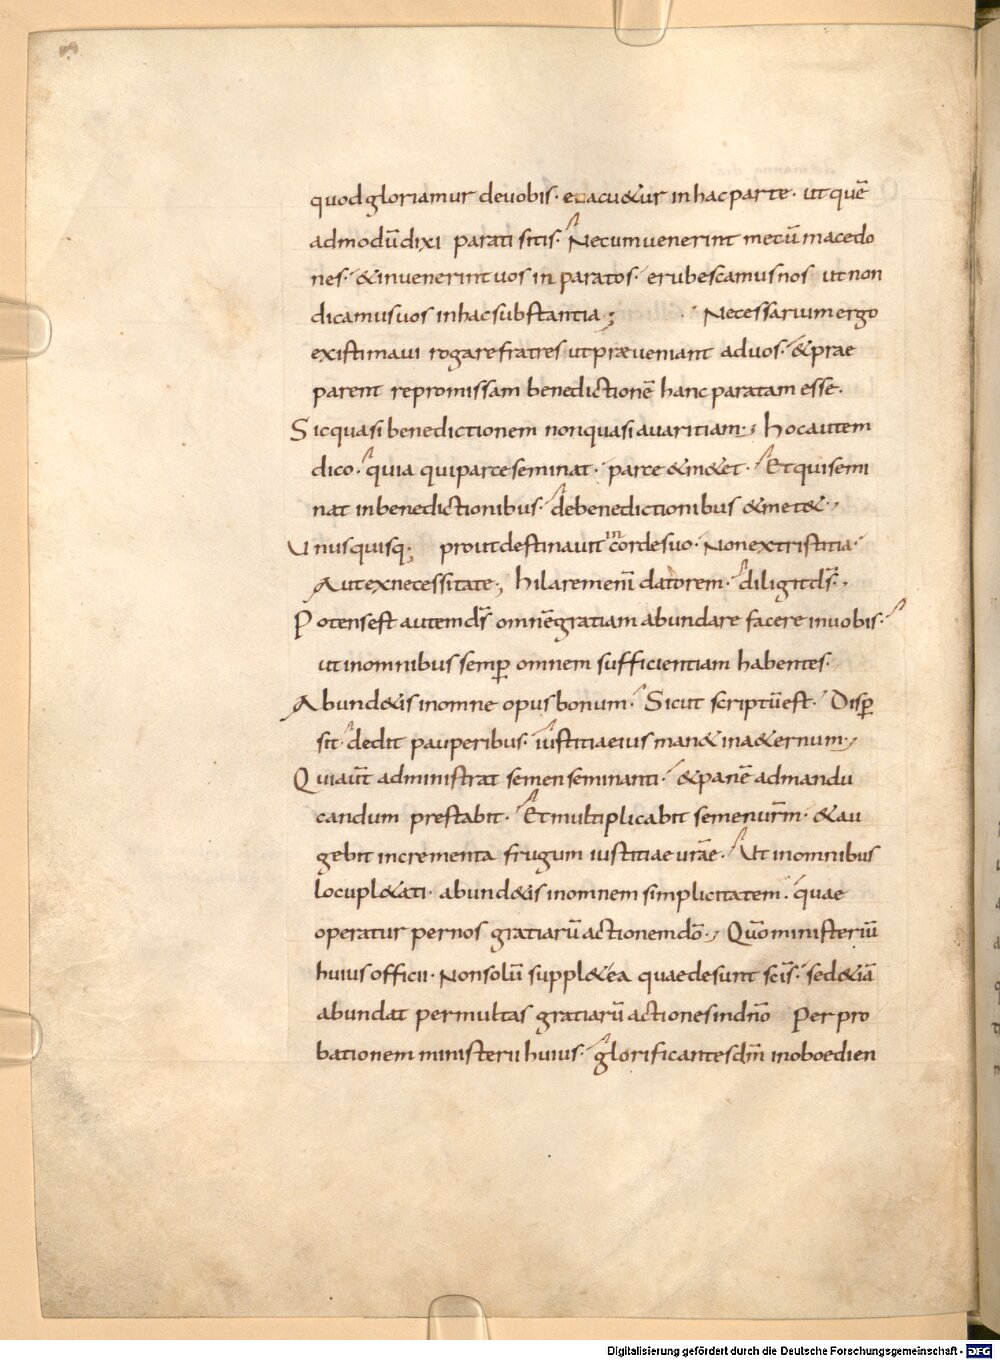 quodgloriamur deuobis· euacu&ur inhacparte· utquē
admodū dixi parati sitis· Necumuenerint mecū macedo
nes· &inuenerintuos inparatos· erubescamusnos ut non
dicamusuos inhacsubstantia; · Necessariumergo
existimaui rogarefratres utpræueniant aduos· &prae
parent repromissam benedictionē hanc paratam esse·
Sicquasi benedictionem nonquasi auaritiam·, hocautem
dico· quia quiparceseminat· parce &m&et· Etquisemi
nat inbenedictionibus· debenedictionibus &met&·,
Unusquisq; proutdestinauit in cordesuo· Nonextristitia·
Autexnecessitate, hilaremenim̄ datorem· diligitd̄s·,
Potensest autemd̄s omnēgratiam abundare facere inuobis·
utinomnibus semꝑ omnem sufficientiam habentes·
Abund&is inomne opus bonum· Sicut scriptūest· Disꝑ
sit· dedit pauperibus· iustitiaeius man& ina&ernum·,
Quiaut̄ administrat semen seminanti· &panē admandu
candum prestabit· Etmultiplicabit semenur̄m· &au
gebit incrementa frugum iustitiae urāe· Ut inomnibus
locupl&ati· abund&is inomnem simplicitatem· quae
operatur pernos gratiarū actionemdō·, Qūo ministeriū
huius officii· Nonsolū suppl&ea quaedesunt sc̄is· sed&iā
abundat permultas gratiarū actionesindn̄o Perpro
bationem ministerii huius· glorificantesdm̄ inoboedien
Digitalisierung gefördert durch die Deutsche Forschungsgemeinschaft - DFG